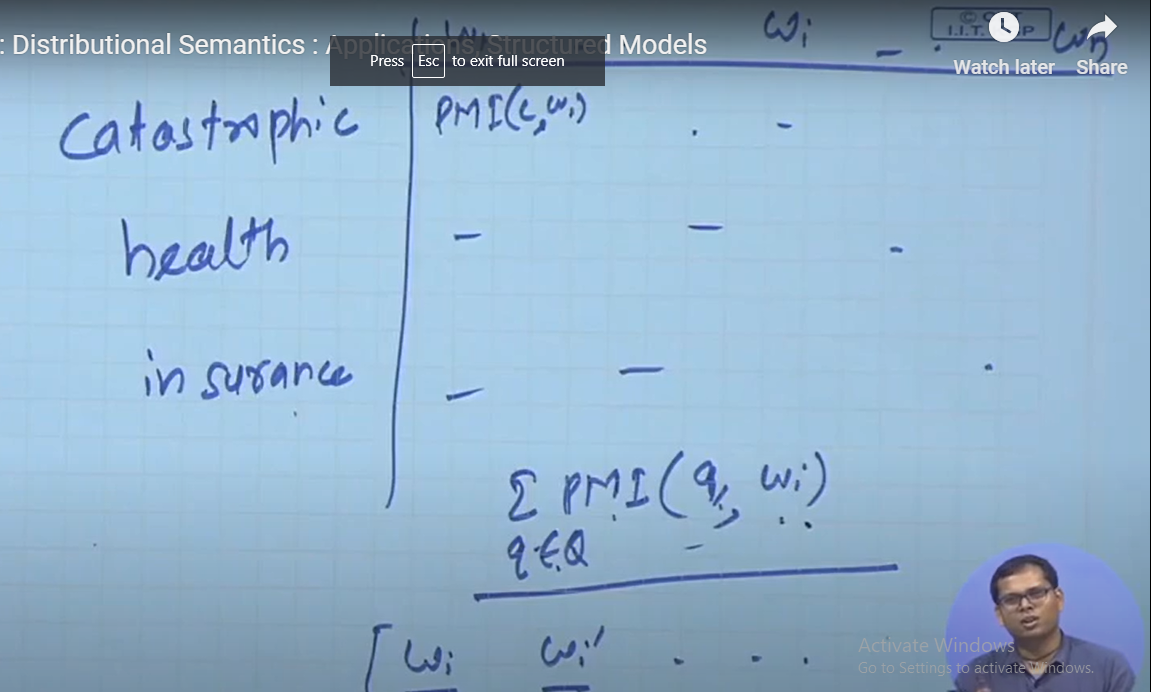 : Distributional Semantics : Applications, Structured Models
Press Esc to exit full screen
Watch later Share
wi - . wn
catastrophic PMI(c, wi) . -
health - - -
insurance - - .
Σ PMI(q, wi)
q∈Q -
[wi wi' . . .
Activate Windows
Go to Settings to activate Windows.